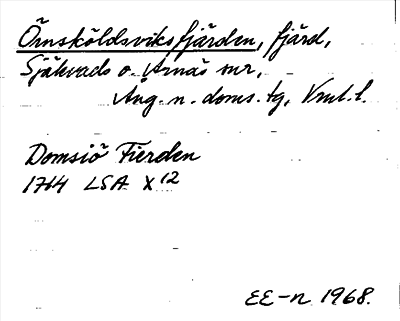 Örnsköldsviksfjärden, fjärd,
Själevads o. Arnäs snr,
Ång. n. doms. tg, Vnl. l.
Domsiö Fierden
1714 LSA X 12
EE-n 1968.